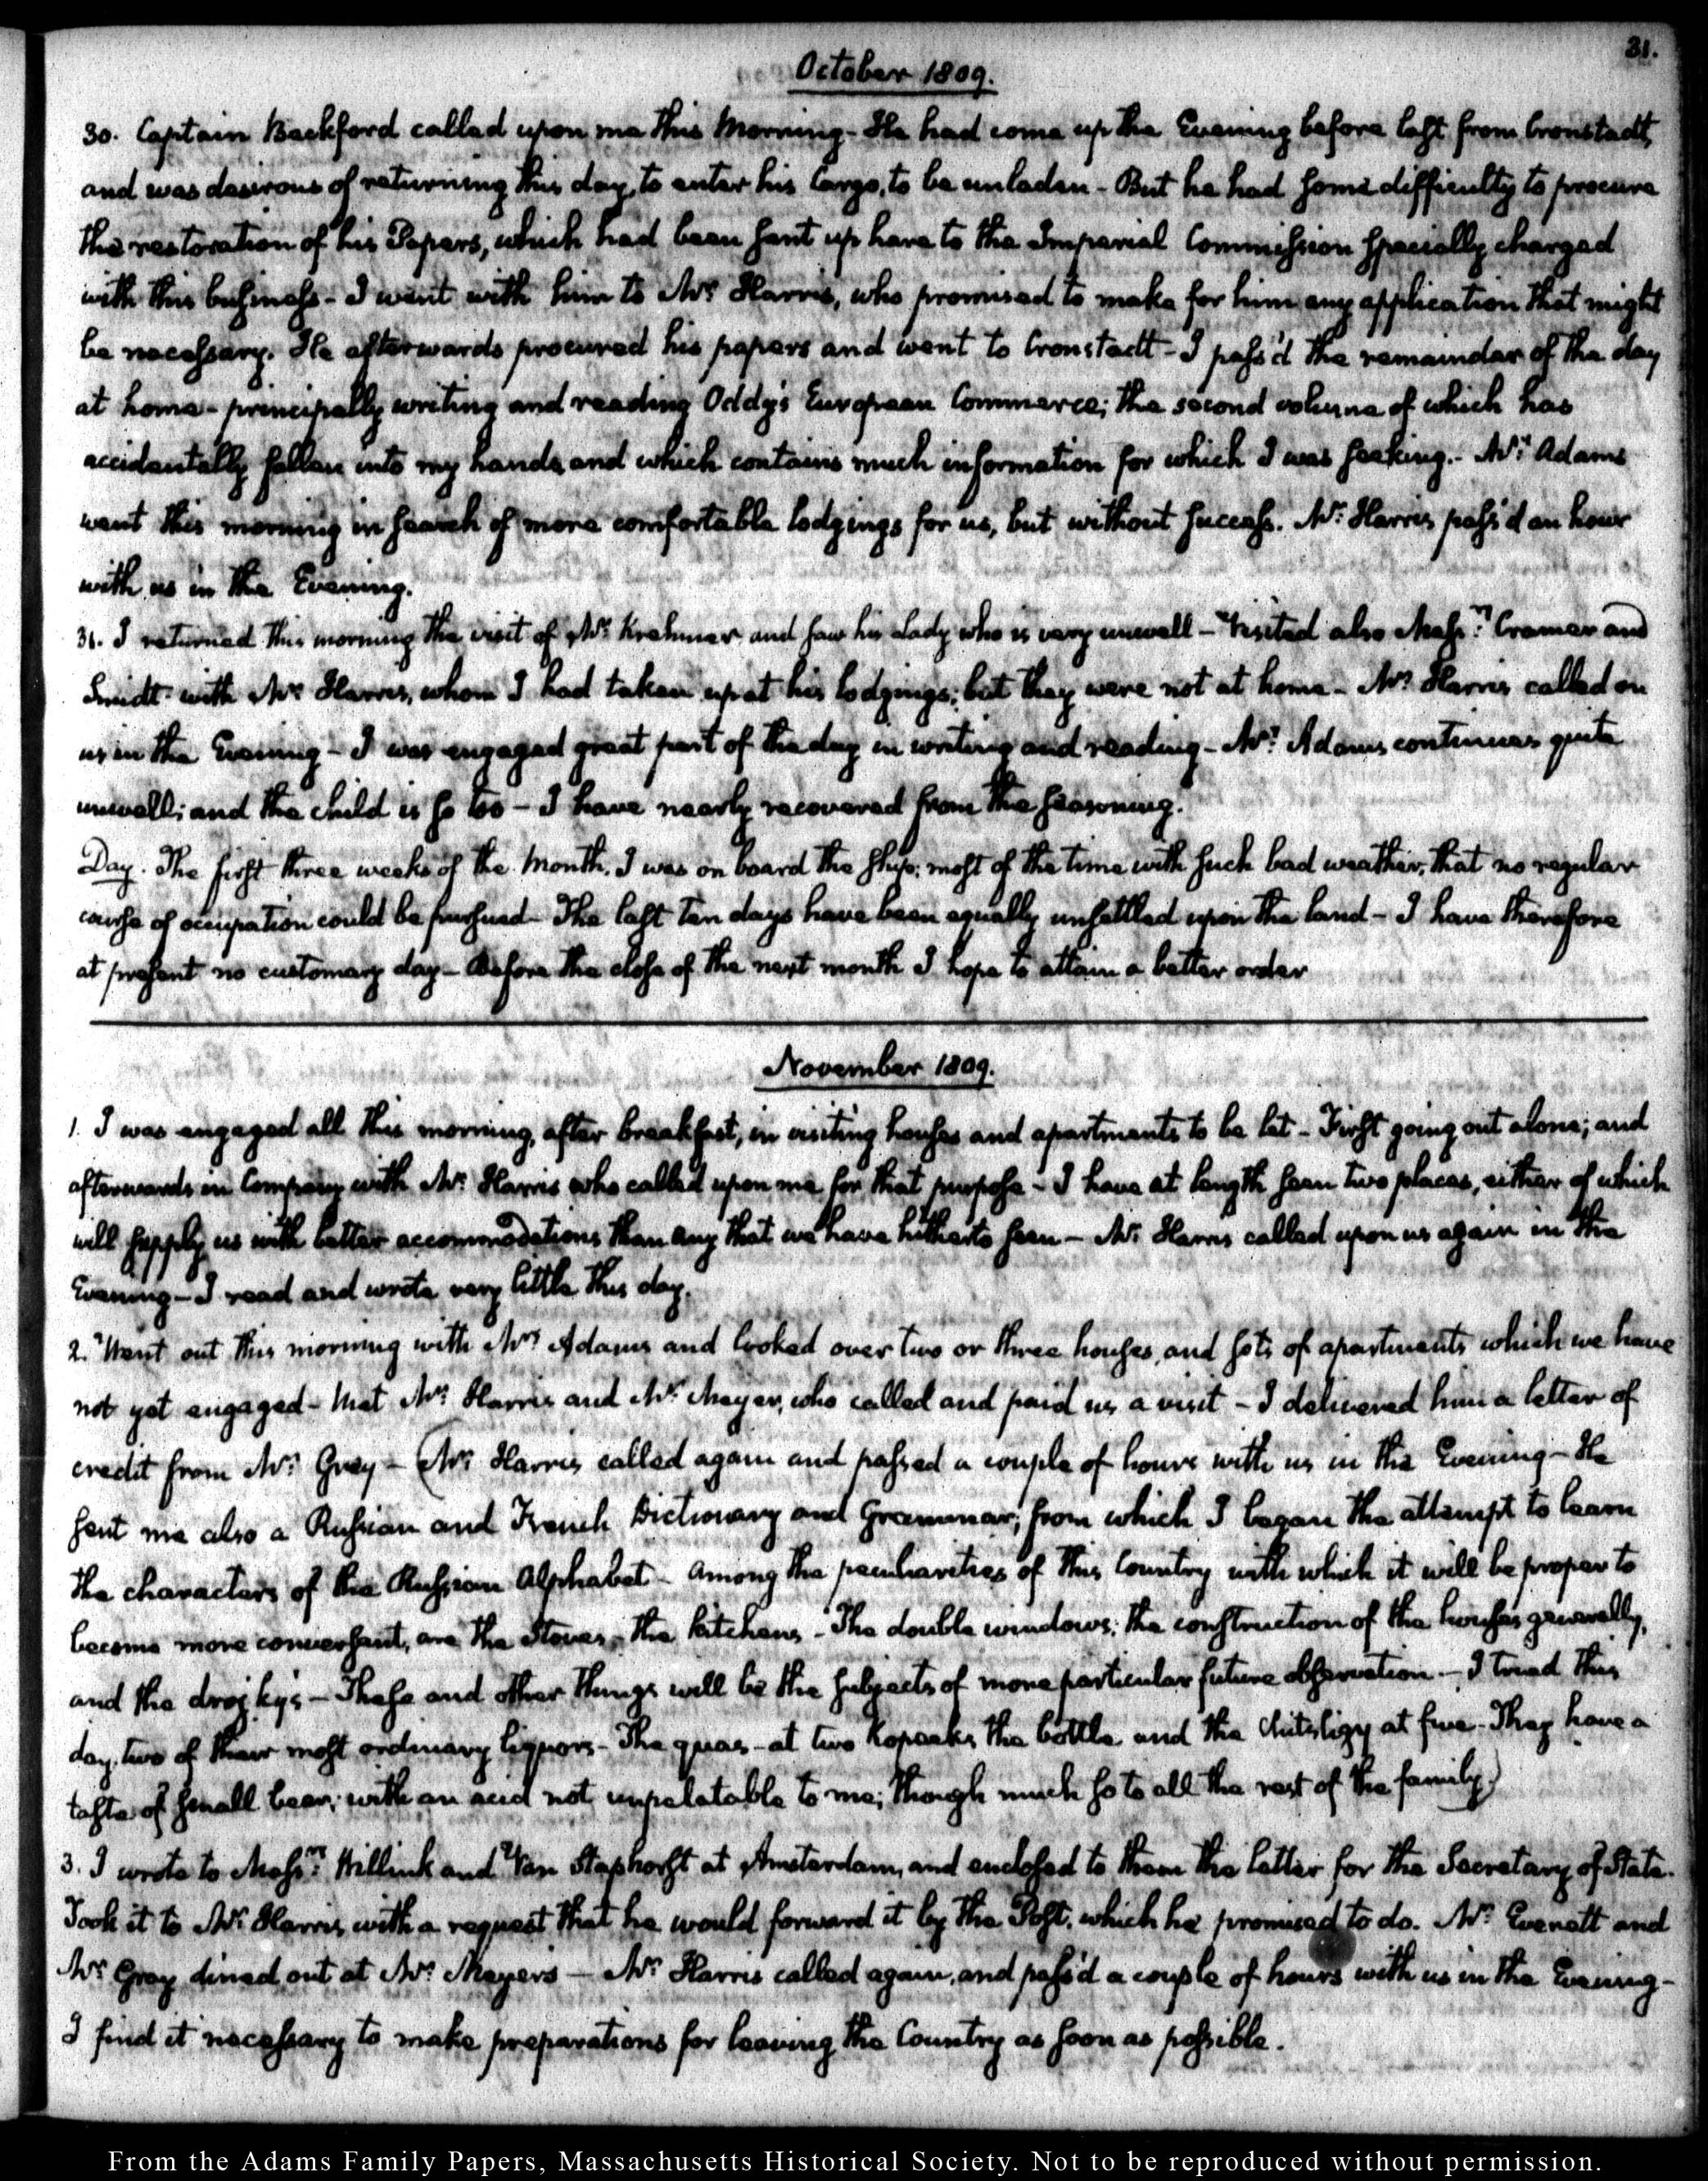 31.
October 1809.
30. Captain Beckford called upon me this Morning - He had come up the Evening before last from Cronstadt,
and was desirous of returning this day, to enter his Cargo, to be unladen - But he had some difficulty to procure
the restoration of his Papers, which had been sent up here to the Imperial Commission specially charged
with this business - I went with him to Mr. Harris, who promised to make for him any application that might
be necessary. He afterwards procured his papers and went to Cronstadt - I pass'd the remainder of the day
at home - principally writing and reading Oddy's European Commerce; the second volume of which has
accidentally fallen into my hands, and which contains much information for which I was seeking. - Mrs. Adams
went this morning in search of more comfortable lodgings for us, but without success. Mr. Harris pass'd an hour
with us in the Evening.
31. I returned this morning the visit of Mr. Krehmer and saw his Lady who is very unwell - Visited also Messrs. Cramer and
Smidt with Mr. Harris, whom I had taken up at his lodgings; but they were not at home - Mr. Harris called on
us in the Evening - I was engaged great part of the day in writing and reading - Mrs. Adams continues quite
unwell; and the child is so too - I have nearly recovered from the seasoning.
Day. The first three weeks of the Month, I was on board the ship; most of the time with such bad weather, that no regular
course of occupation could be pursued - The last ten days have been equally unsettled upon the land - I have therefore
at present no customary day - Before the close of the next month I hope to attain a better order
November 1809.
1. I was engaged all this morning, after breakfast, in visiting houses and apartments to be let - First going out alone; and
afterwards in Company with Mr. Harris who called upon me for that purpose - I have at length seen two places, either of which
will supply us with better accommodations than any that we have hitherto seen - Mr. Harris called upon us again in the
Evening - I read and wrote very little this day.
2. Went out this morning with Mrs. Adams and looked over two or three houses, and sets of apartments which we have
not yet engaged - Met Mr. Harris and Mr. Meyer, who called and paid us a visit - I delivered him a letter of
credit from Mr. Gray - (Mr. Harris called again and passed a couple of hours with us in the Evening - He
sent me also a Russian and French Dictionary and Grammar; from which I began the attempt to learn
the characters of the Russian Alphabet - Among the peculiarities of this Country with which it will be proper to
become more conversant, are the Stoves, - the kitchens - The double windows; the construction of the houses generally,
and the drojky's - These and other things will be the subjects of more particular future observation. - I tried this
day, two of their most ordinary liquors - The quas - at two Kopeeks the bottle and the Chitslizy at five - They have a
taste of small beer, with an acid not unpalatable to me; though much so to all the rest of the family.)
3. I wrote to Messrs. Willink and Van Staphorst at Amsterdam, and enclosed to them the letter for the Secretary of State.
Took it to Mr. Harris, with a request that he would forward it by the Post, which he promised to do. Mr. Everett and
Mr. Gray dined out at Mr. Meyers - Mr. Harris called again, and pass'd a couple of hours with us in the Evening -
I find it necessary to make preparations for leaving the Country as soon as possible.
From the Adams Family Papers, Massachusetts Historical Society. Not to be reproduced without permission.